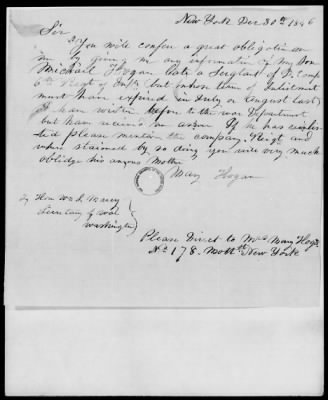 New York Dec 30th 1846
Sir
You will confer a great obligation on
me by giving me any information of my Son
Michael Hogan late a Sergant of I. comp
6th Regt of Infty but whos term of Enlistment
must have expired in July or August last
I have written before to the war Department
but have received no answr If he has reenlis-
ted please mention the company, Reigt and
when stained by so doing you will very much
oblidge his anxous Mother
Mary Hogan
To Hon Wm L Marcy
Secretary of war
Washington
Please Direct to Mrs Mary Hogan
No 178. Mott St New York